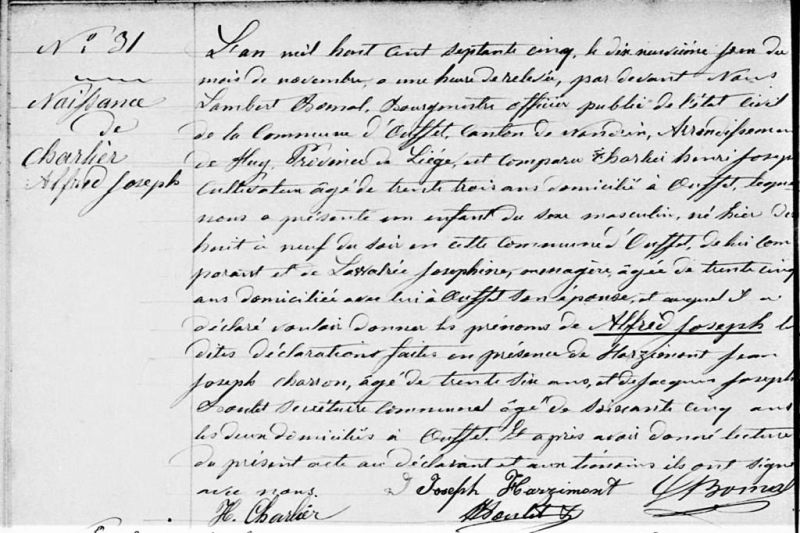 N° 31
Naissance
de
Charlier
Alfred Joseph
L'an mil huit cent septante cinq, le dix neuvième jour du
mois de novembre, a une heure de relevée, par devant Nous
Lambert Bomal, Bourgmestre officier public de l'état civil
de la Commune d'Ouffet, canton de nandrin, Arrondissement
de Huy, Province de Liége, est comparu Charlier henri Joseph
Cultivateur âgé de trente trois ans domicilié à Ouffet, lequel
nous a présenté un enfant du sexe masculin, né hier de
huit à neuf du soir en cette commune d'Ouffet, de lui com
parant et de Joséphine, ménagère, âgée de trente cinq
ans domiciliée avec lui à Ouffet son épouse, et auquel il a
déclaré vouloir donner les prénoms de Alfred Joseph les
dites déclarations faites en présence de Harzimont Jean
Joseph charron, âgé de trente six ans, et de Jacques Joseph
Boulet secrétaire communal âgé de soixante cinq ans
les deux domiciliés à Ouffet. Et après avoir donné lecture
du présent acte au déclarant et aux témoins ils ont signé
avec nous. J Joseph Harzimont L Bomal
H. Charlier Boulet